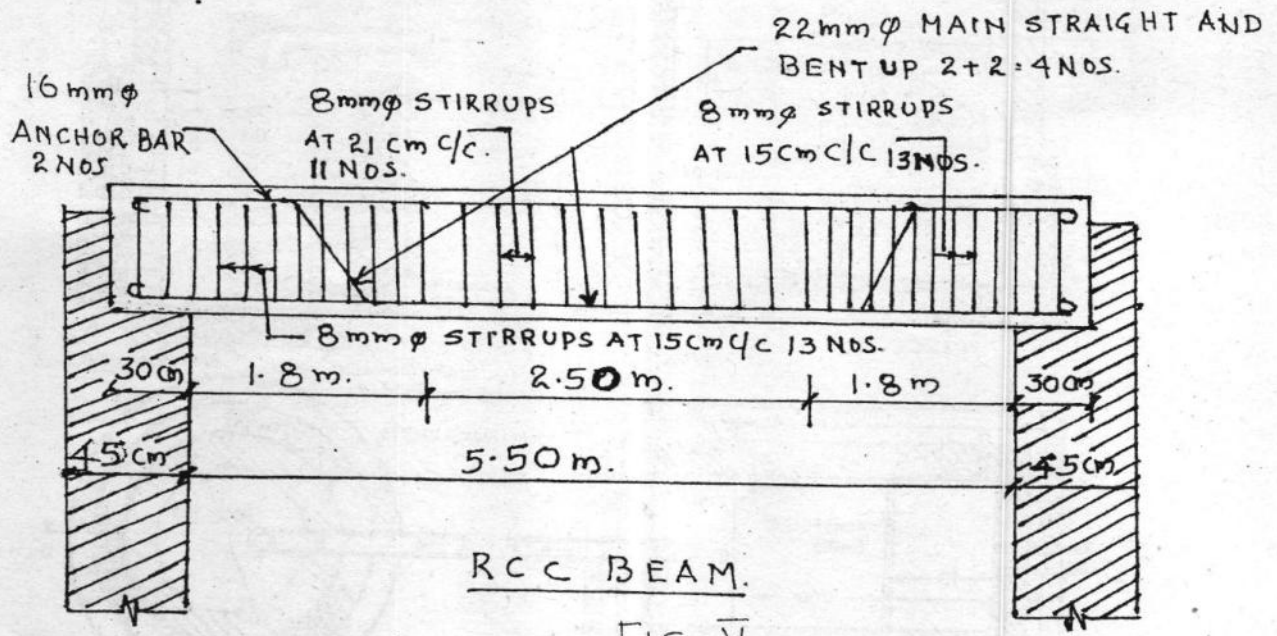 22mm φ MAIN STRAIGHT AND
BENT UP 2+2=4 NOS.
16mm φ
ANCHOR BAR
2 NOS
8mm φ STIRRUPS
AT 21 cm C/C.
11 NOS.
8mm φ STIRRUPS
AT 15cm C/C 13NOS.
8mm φ STIRRUPS AT 15cm C/C 13 NOS.
30 cm
1.8 m.
2.50 m.
1.8 m
30 cm
45 cm
5.50 m.
45 cm
RCC BEAM.